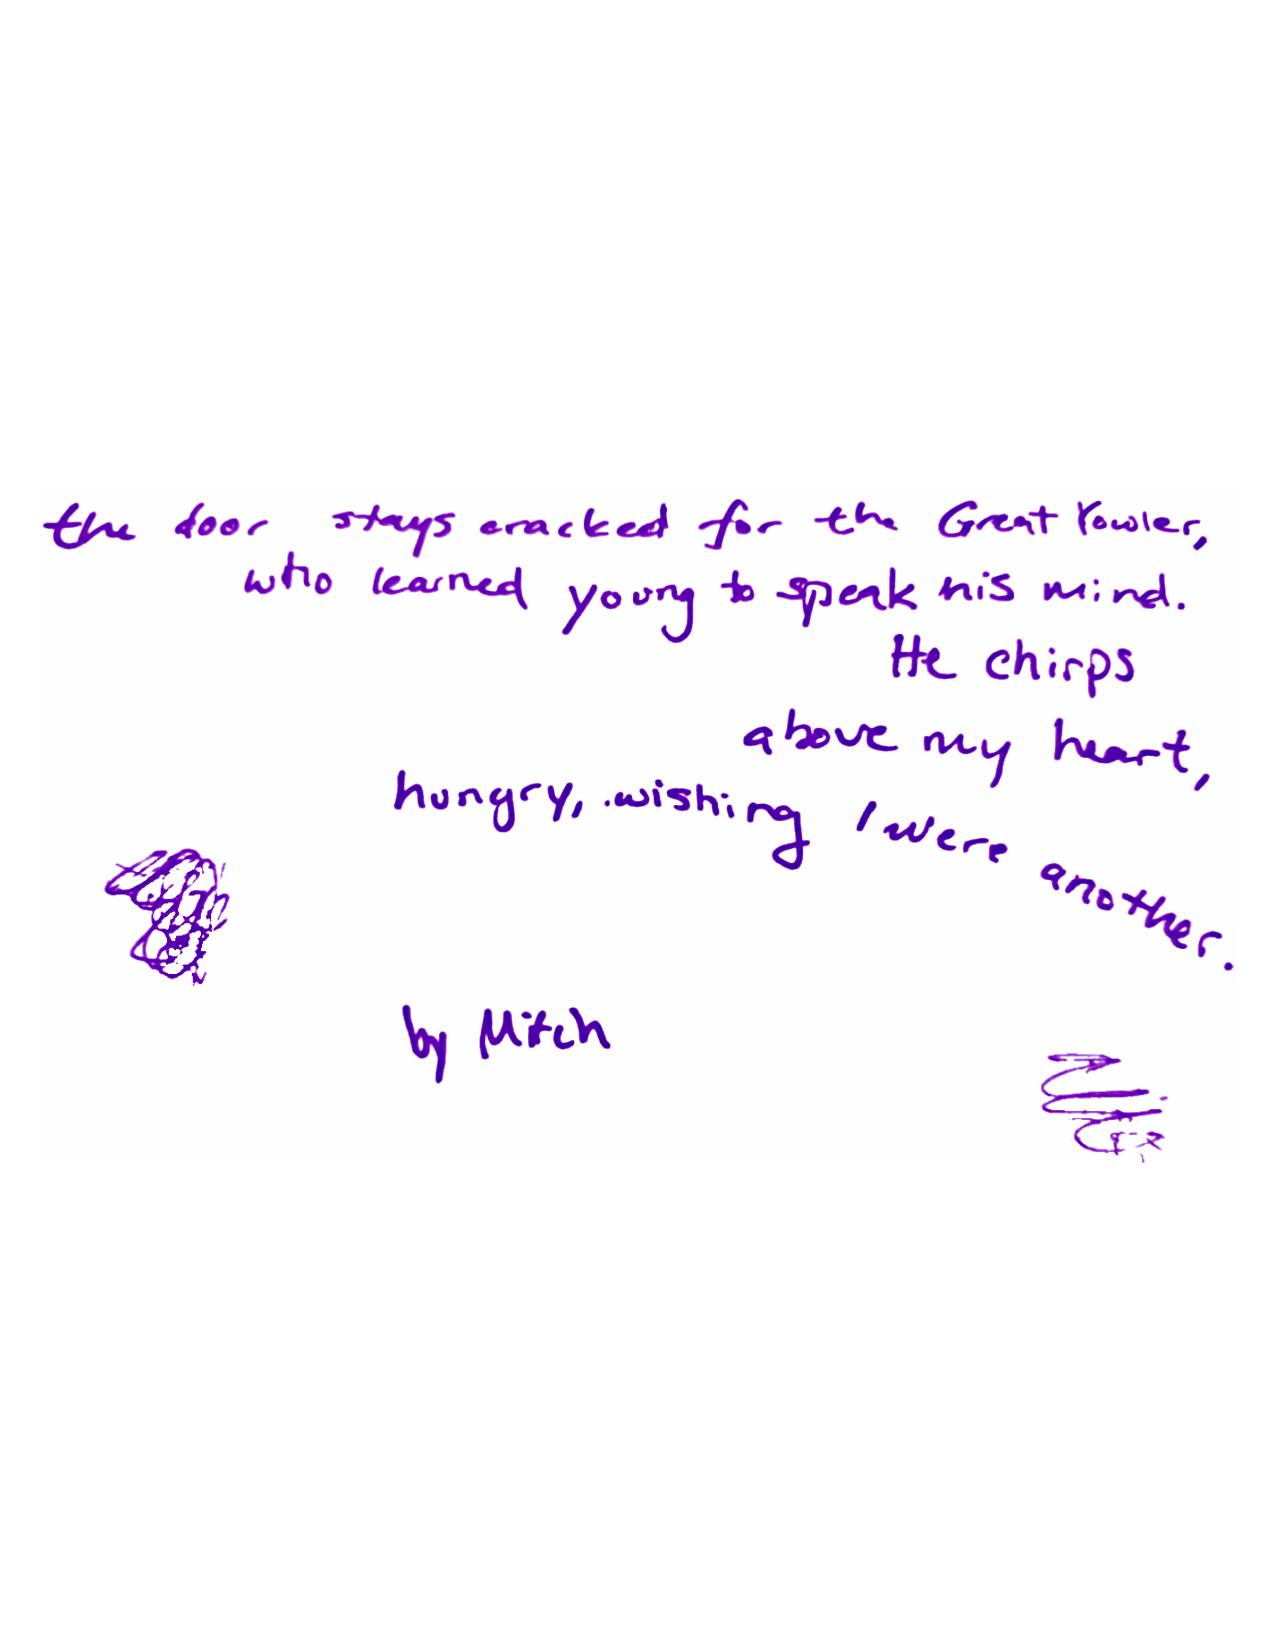 the door stays cracked for the Great Yowler,
who learned young to speak his mind.
He chirps
above my heart,
hungry, wishing I were another.
by Mitch